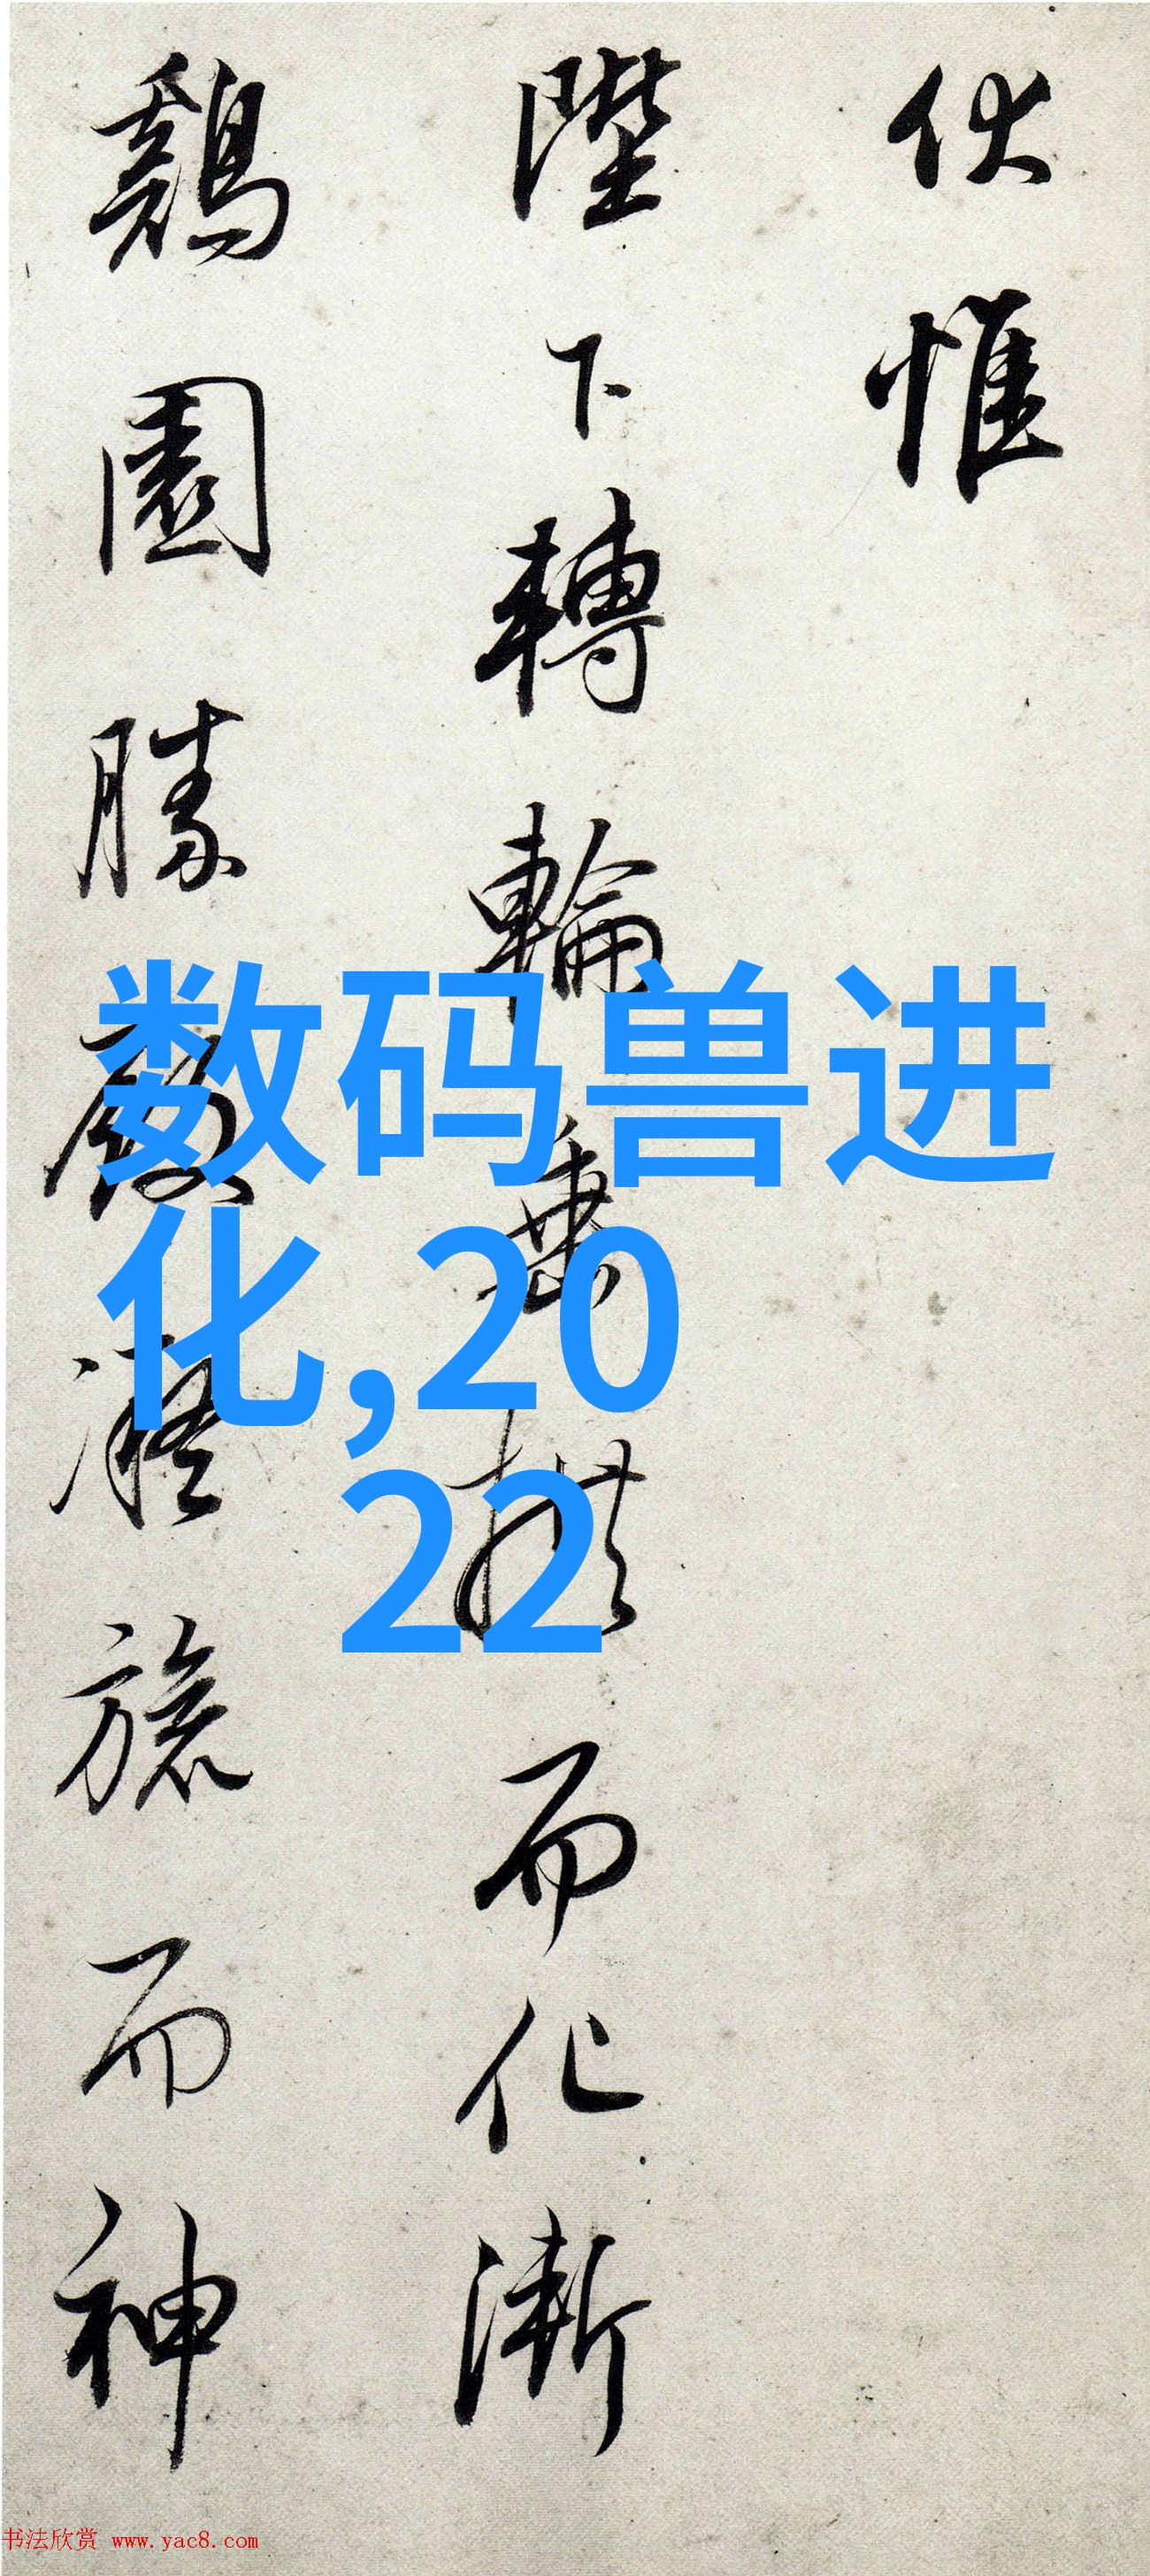 伏惟
陛下轉輪垂拱而化漸
鷄園勝殿凝旒而神
数码兽进
化,20
22
书法欣赏 www.yac8.com